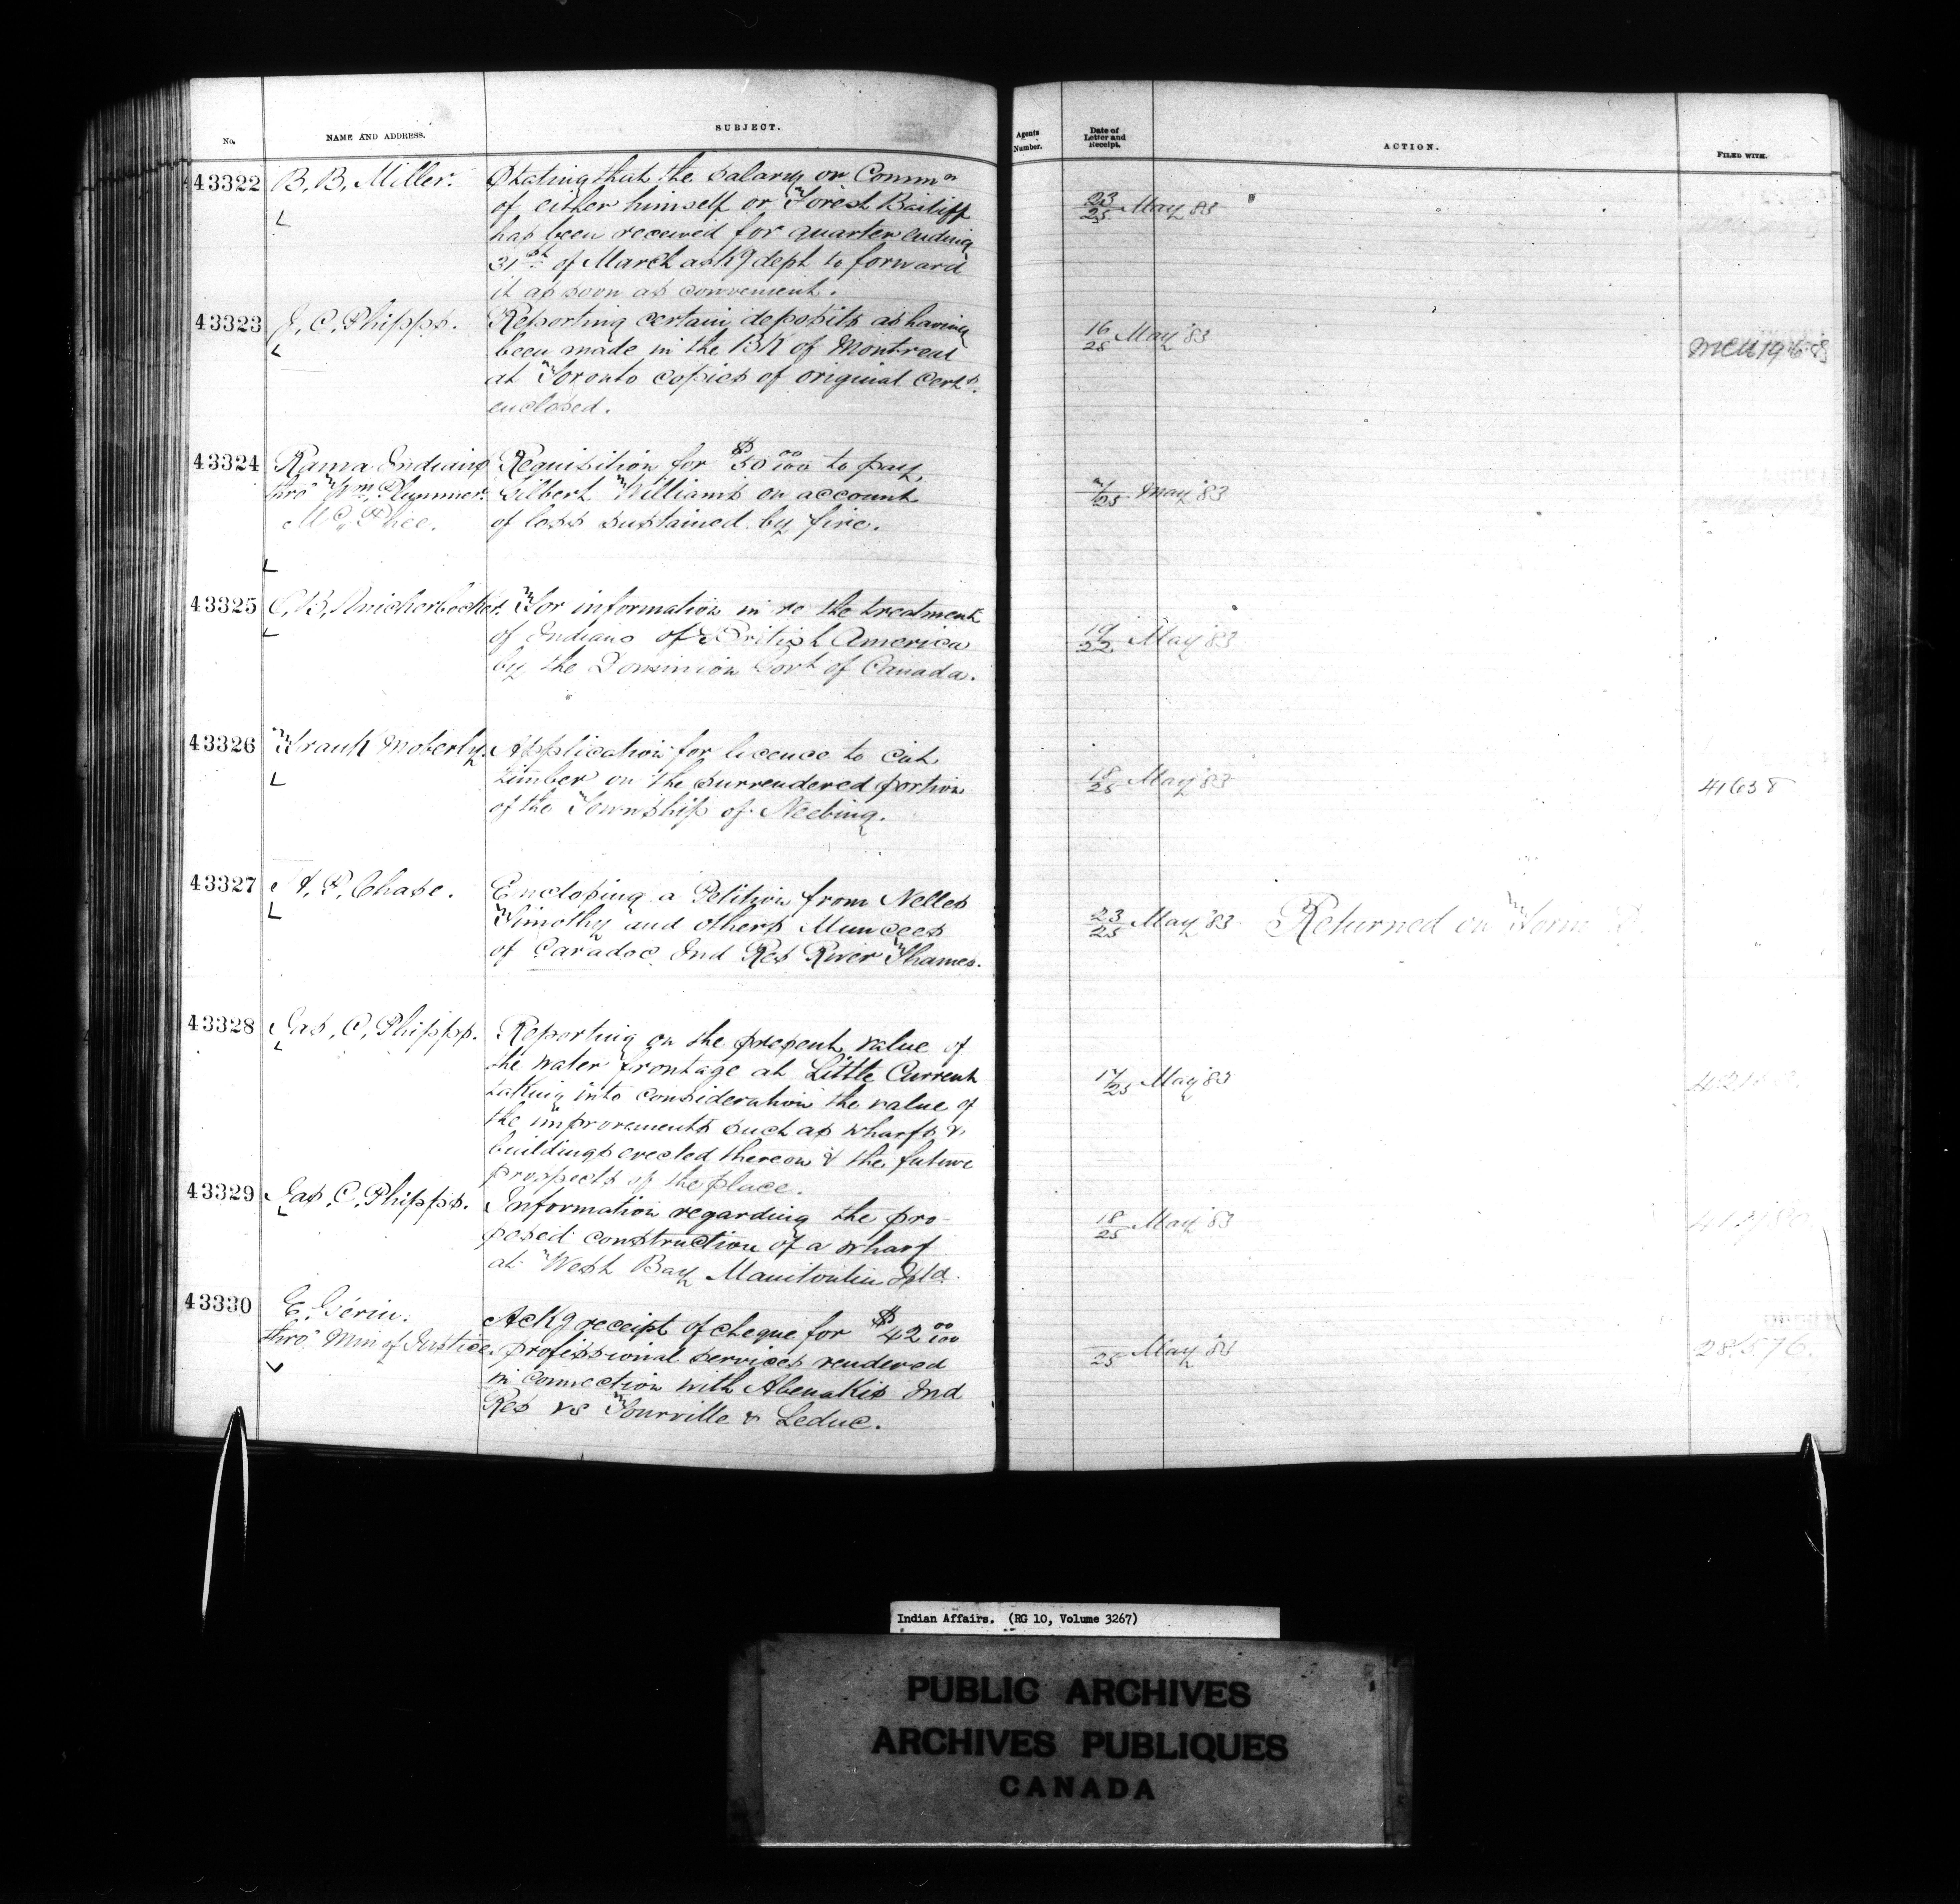 No.
NAME AND ADDRESS.
SUBJECT.
Agents Number.
Date of Letter and Receipt.
ACTION.
FILED WITH.
43322
B. B. Miller.
Stating that the salary or Commn
of either himself or Forest Bailiff
has been received for quarter ending
31st of March askg dept to forward
it as soon as convenient.
23/25 May 83
43323
J. C. Phipps.
Reporting certain deposits as having
been made in the BK of Montreal
at Toronto copies of original Certs.
enclosed.
16/25 May '83
43324
Rama Indians
thro' Wm Plummer.
McPhee.
Requisition for $50 00/100 to pay
Gilbert Williams on account
of loss sustained by fire.
/25 May '83
43325
C. B. Knickerbocker.
For information in re the treatment
of Indians of British America
by the Dominion Govt of Canada.
19/22 May '83
43326
Frank Moberly.
Application for licence to cut
timber on the surrendered portion
of the Township of Neebing.
18/25 May '83
41638
43327
A. P. Chase.
Enclosing a Petition from Nelles
Timothy and others Muncees
of Caradoc Ind Res River Thames.
23/25 May '83
Returned on Form
43328
Jas. C. Phipps.
Reporting on the present value of
the water frontage at Little Current
taking into consideration the value of
the improvements such as wharfs &
buildings erected thereon & the future
prospects of the place.
17/25 May '83
43329
Jas. C. Phipps.
Information regarding the pro-
posed construction of a wharf
at West Bay Manitoulin Isld.
18/25 May '83
43330
E. Gérin.
thro' Min of Justice.
Ackg receipt of cheque for $42 00/100
professional services rendered
in connection with Abenakis Ind
Res vs Tourville & Leduc.
/25 May '83
28,576.
Indian Affairs. (RG 10, Volume 3267)
PUBLIC ARCHIVES
ARCHIVES PUBLIQUES
CANADA